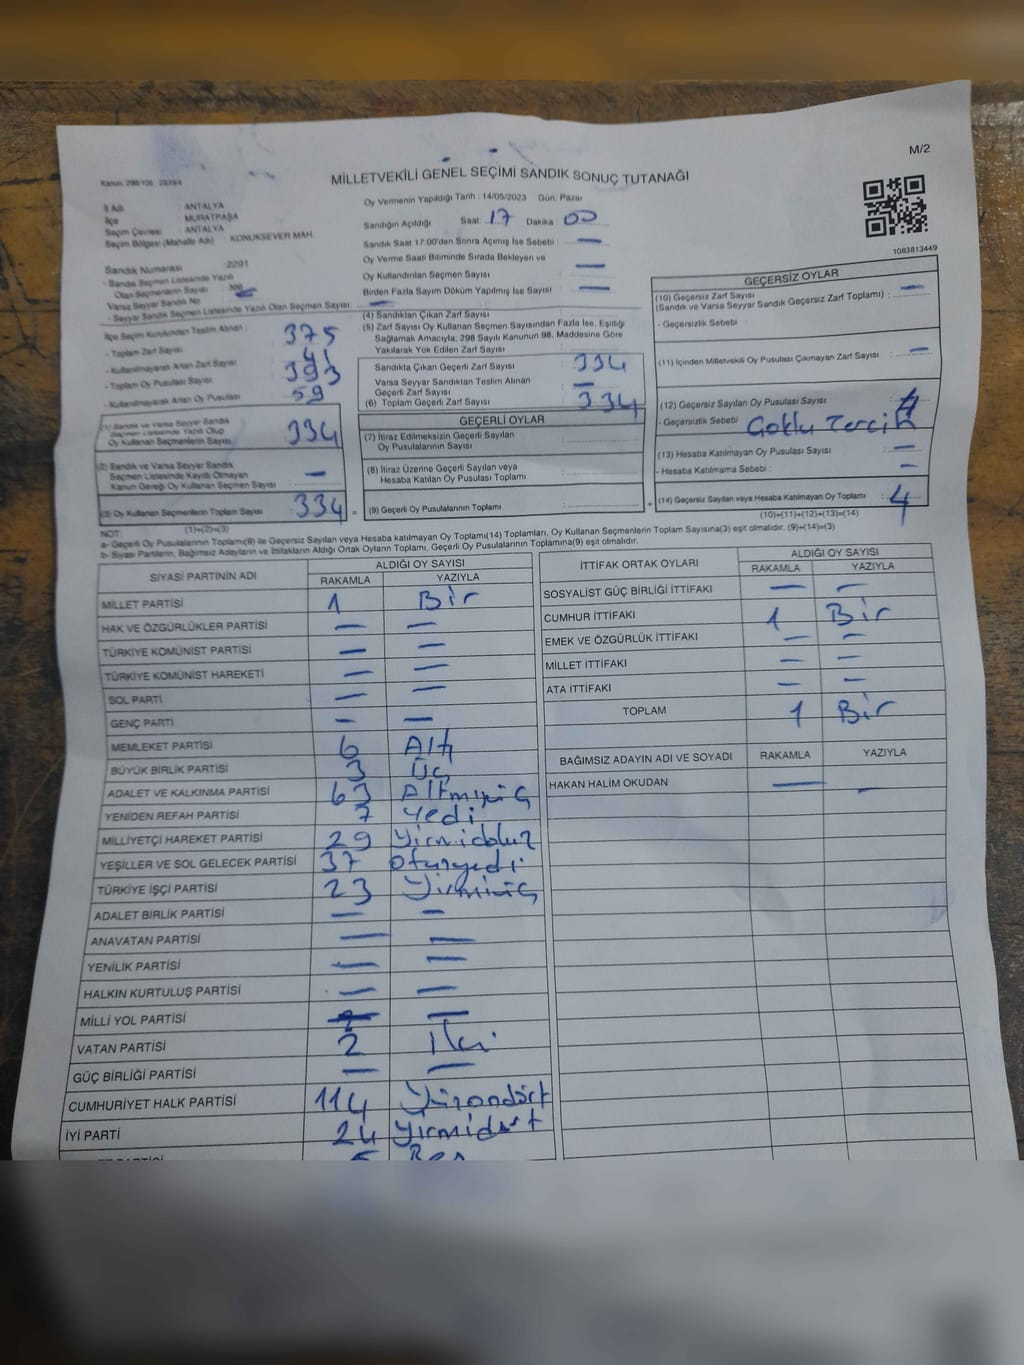 M/2
Kanun: 298/105 : 2839/4
MİLLETVEKİLİ GENEL SEÇİMİ SANDIK SONUÇ TUTANAĞI
İl Adı : ANTALYA
İlçe : MURATPAŞA
Seçim Çevresi : ANTALYA
Seçim Bölgesi (Mahalle Adı) : KONUKSEVER MAH.
Oy Vermenin Yapıldığı Tarih : 14/05/2023 Gün: Pazar
Sandığın Açıldığı Saat: 17 Dakika: 00
Sandık Saat 17:00'den Sonra Açılmış İse Sebebi : —
Oy Verme Saati Bitiminde Sırada Bekleyen ve
Oy Kullandırılan Seçmen Sayısı : —
Birden Fazla Sayım Döküm Yapılmış İse Sayısı : —
1083813449
Sandık Numarası : 2291
- Sandık Seçmen Listesinde Yazılı
Olan Seçmenlerin Sayısı :
Varsa Seyyar Sandık No
- Seyyar Sandık Listesinde Yazılı Olan Seçmen Sayısı: —
İlçe Seçim Kurulundan Teslim Alınan :
- Toplam Zarf Sayısı 375
- Kullanılmayarak Artan Zarf Sayısı 41
- Toplam Oy Pusulası Sayısı 393
- Kullanılmayarak Artan Oy Pusulası 59
(1) Sandık ve Varsa Seyyar Sandık
Seçmen Listesinde Yazılı Olup
Oy Kullanan Seçmenlerin Sayısı 334
(2) Sandık ve Varsa Seyyar Sandık
Seçmen Listesinde Kayıtlı Olmayan
Kanun Gereği Oy Kullanan Seçmen Sayısı : —
(3) Oy Kullanan Seçmenlerin Toplam Sayısı 334 =
(1)+(2)=(3)
(4) Sandıktan Çıkan Zarf Sayısı
(5) Zarf Sayısı Oy Kullanan Seçmen Sayısından Fazla İse, Eşitliği
Sağlamak Amacıyla; 298 Sayılı Kanunun 98. Maddesine Göre
Yakılarak Yok Edilen Zarf Sayısı
Sandıkta Çıkan Geçerli Zarf Sayısı 334
Varsa Seyyar Sandıktan Teslim Alınan
Geçerli Zarf Sayısı —
(6) Toplam Geçerli Zarf Sayısı 334
GEÇERLİ OYLAR
(7) İtiraz Edilmeksizin Geçerli Sayılan
Oy Pusulalarının Sayısı :
(8) İtiraz Üzerine Geçerli Sayılan veya
Hesaba Katılan Oy Pusulası Toplamı :
(9) Geçerli Oy Pusulalarının Toplamı : +
GEÇERSİZ OYLAR
(10) Geçersiz Zarf Sayısı
(Sandık ve Varsa Seyyar Sandık Geçersiz Zarf Toplamı) : —
- Geçersizlik Sebebi :
(11) İçinden Milletvekili Oy Pusulası Çıkmayan Zarf Sayısı : —
(12) Geçersiz Sayılan Oy Pusulası Sayısı : 4
- Geçersizlik Sebebi : Çoklu Tercih
(13) Hesaba Katılmayan Oy Pusulası Sayısı : —
- Hesaba Katılmama Sebebi : —
(14) Geçersiz Sayılan veya Hesaba Katılmayan Oy Toplamı : 4
(10)+(11)+(12)+(13)=(14)
NOT:
a- Geçerli Oy Pusulalarının Toplamı(9) ile Geçersiz Sayılan veya Hesaba katılmayan Oy Toplamı(14) Toplamları, Oy Kullanan Seçmenlerin Toplam Sayısına(3) eşit olmalıdır. (9)+(14)=(3)
b- Siyasi Partilerin, Bağımsız Adayların ve İttifakların Aldığı Ortak Oyların Toplamı, Geçerli Oy Pusulalarının Toplamına(9) eşit olmalıdır.
SİYASİ PARTİNİN ADI ALDIĞI OY SAYISI
RAKAMLA YAZIYLA
MİLLET PARTİSİ 1 Bir
HAK VE ÖZGÜRLÜKLER PARTİSİ — —
TÜRKİYE KOMÜNİST PARTİSİ — —
TÜRKİYE KOMÜNİST HAREKETİ — —
SOL PARTİ — —
GENÇ PARTİ — —
MEMLEKET PARTİSİ 6 Altı
BÜYÜK BİRLİK PARTİSİ 3 Üç
ADALET VE KALKINMA PARTİSİ 63 Altmışüç
YENİDEN REFAH PARTİSİ 7 Yedi
MİLLİYETÇİ HAREKET PARTİSİ 29 Yirmidokuz
YEŞİLLER VE SOL GELECEK PARTİSİ 37 Otuzyedi
TÜRKİYE İŞÇİ PARTİSİ 23 Yirmiüç
ADALET BİRLİK PARTİSİ — —
ANAVATAN PARTİSİ — —
YENİLİK PARTİSİ — —
HALKIN KURTULUŞ PARTİSİ — —
MİLLİ YOL PARTİSİ — —
VATAN PARTİSİ 2 İki
GÜÇ BİRLİĞİ PARTİSİ — —
CUMHURİYET HALK PARTİSİ 114 Yüzondört
İYİ PARTİ 24 Yirmidört
İTTİFAK ORTAK OYLARI ALDIĞI OY SAYISI
RAKAMLA YAZIYLA
SOSYALİST GÜÇ BİRLİĞİ İTTİFAKI — —
CUMHUR İTTİFAKI 1 Bir
EMEK VE ÖZGÜRLÜK İTTİFAKI — —
MİLLET İTTİFAKI — —
ATA İTTİFAKI — —
TOPLAM 1 Bir
BAĞIMSIZ ADAYIN ADI VE SOYADI RAKAMLA YAZIYLA
HAKAN HALİM OKUDAN — —